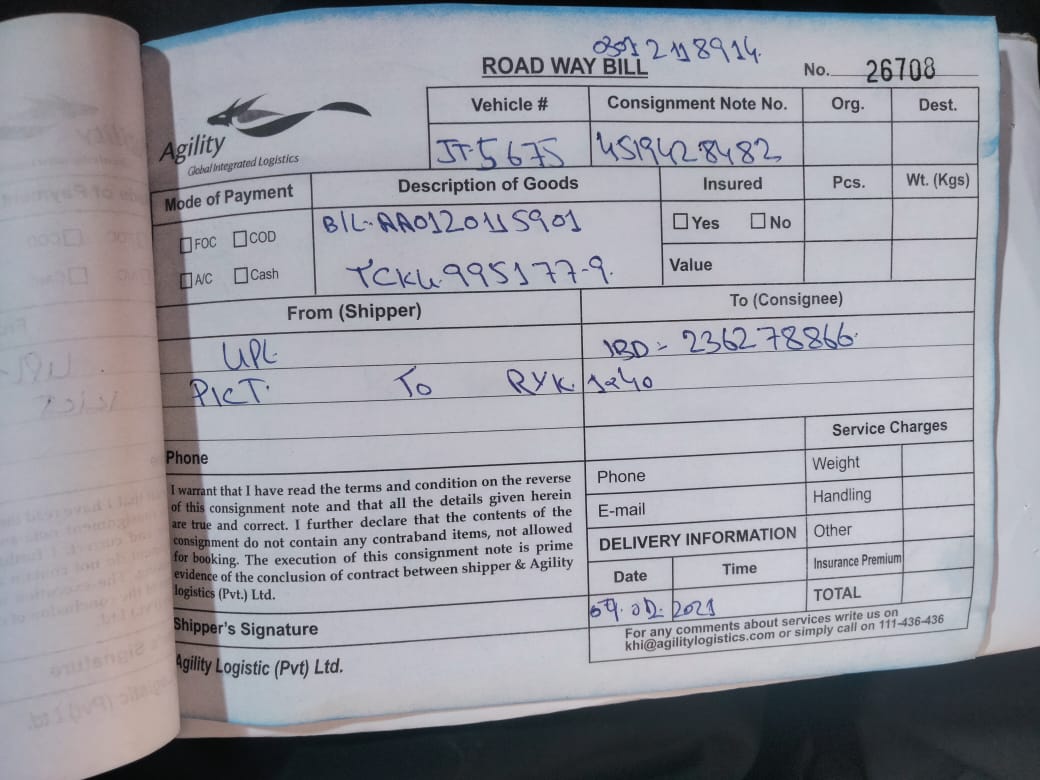 0301 2118914
ROAD WAY BILL
No. 26708
Agility
Global Integrated Logistics
Vehicle # Consignment Note No. Org. Dest.
JT-5675 4519428482
Mode of Payment Description of Goods Insured Pcs. Wt. (Kgs)
FOC COD
A/C Cash
B/L-AA0120115901
TCKU-995177-9.
Yes No
Value
From (Shipper) To (Consignee)
UPL IBD- 236278866.
PICT. To RYK. 1x40
Phone
I warrant that I have read the terms and condition on the reverse
of this consignment note and that all the details given herein
are true and correct. I further declare that the contents of the
consignment do not contain any contraband items, not allowed
for booking. The execution of this consignment note is prime
evidence of the conclusion of contract between shipper & Agility
logistics (Pvt.) Ltd.
Shipper's Signature
Agility Logistic (Pvt) Ltd.
Phone
E-mail
DELIVERY INFORMATION
Date Time
2021
Service Charges
Weight
Handling
Other
Insurance Premium
TOTAL
For any comments about services write us on
khi@agilitylogistics.com or simply call on 111-436-436